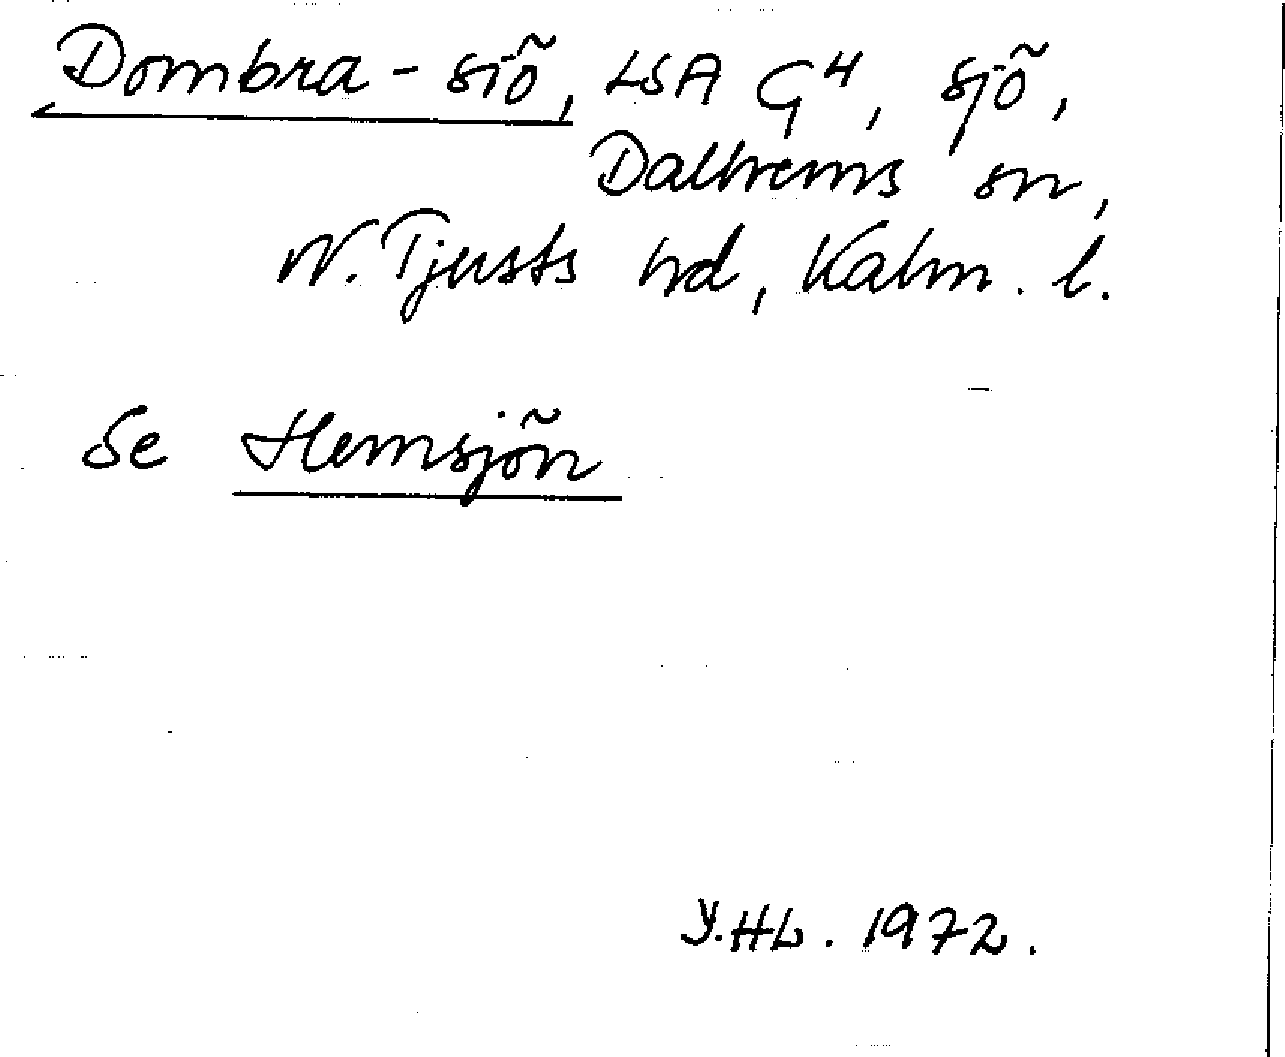 Dombra-siö, LSA G4, sjö,
Dalhems sn,
N. Tjusts hd, Kalm. l.
Se Hemsjön
Y.HL. 1972.